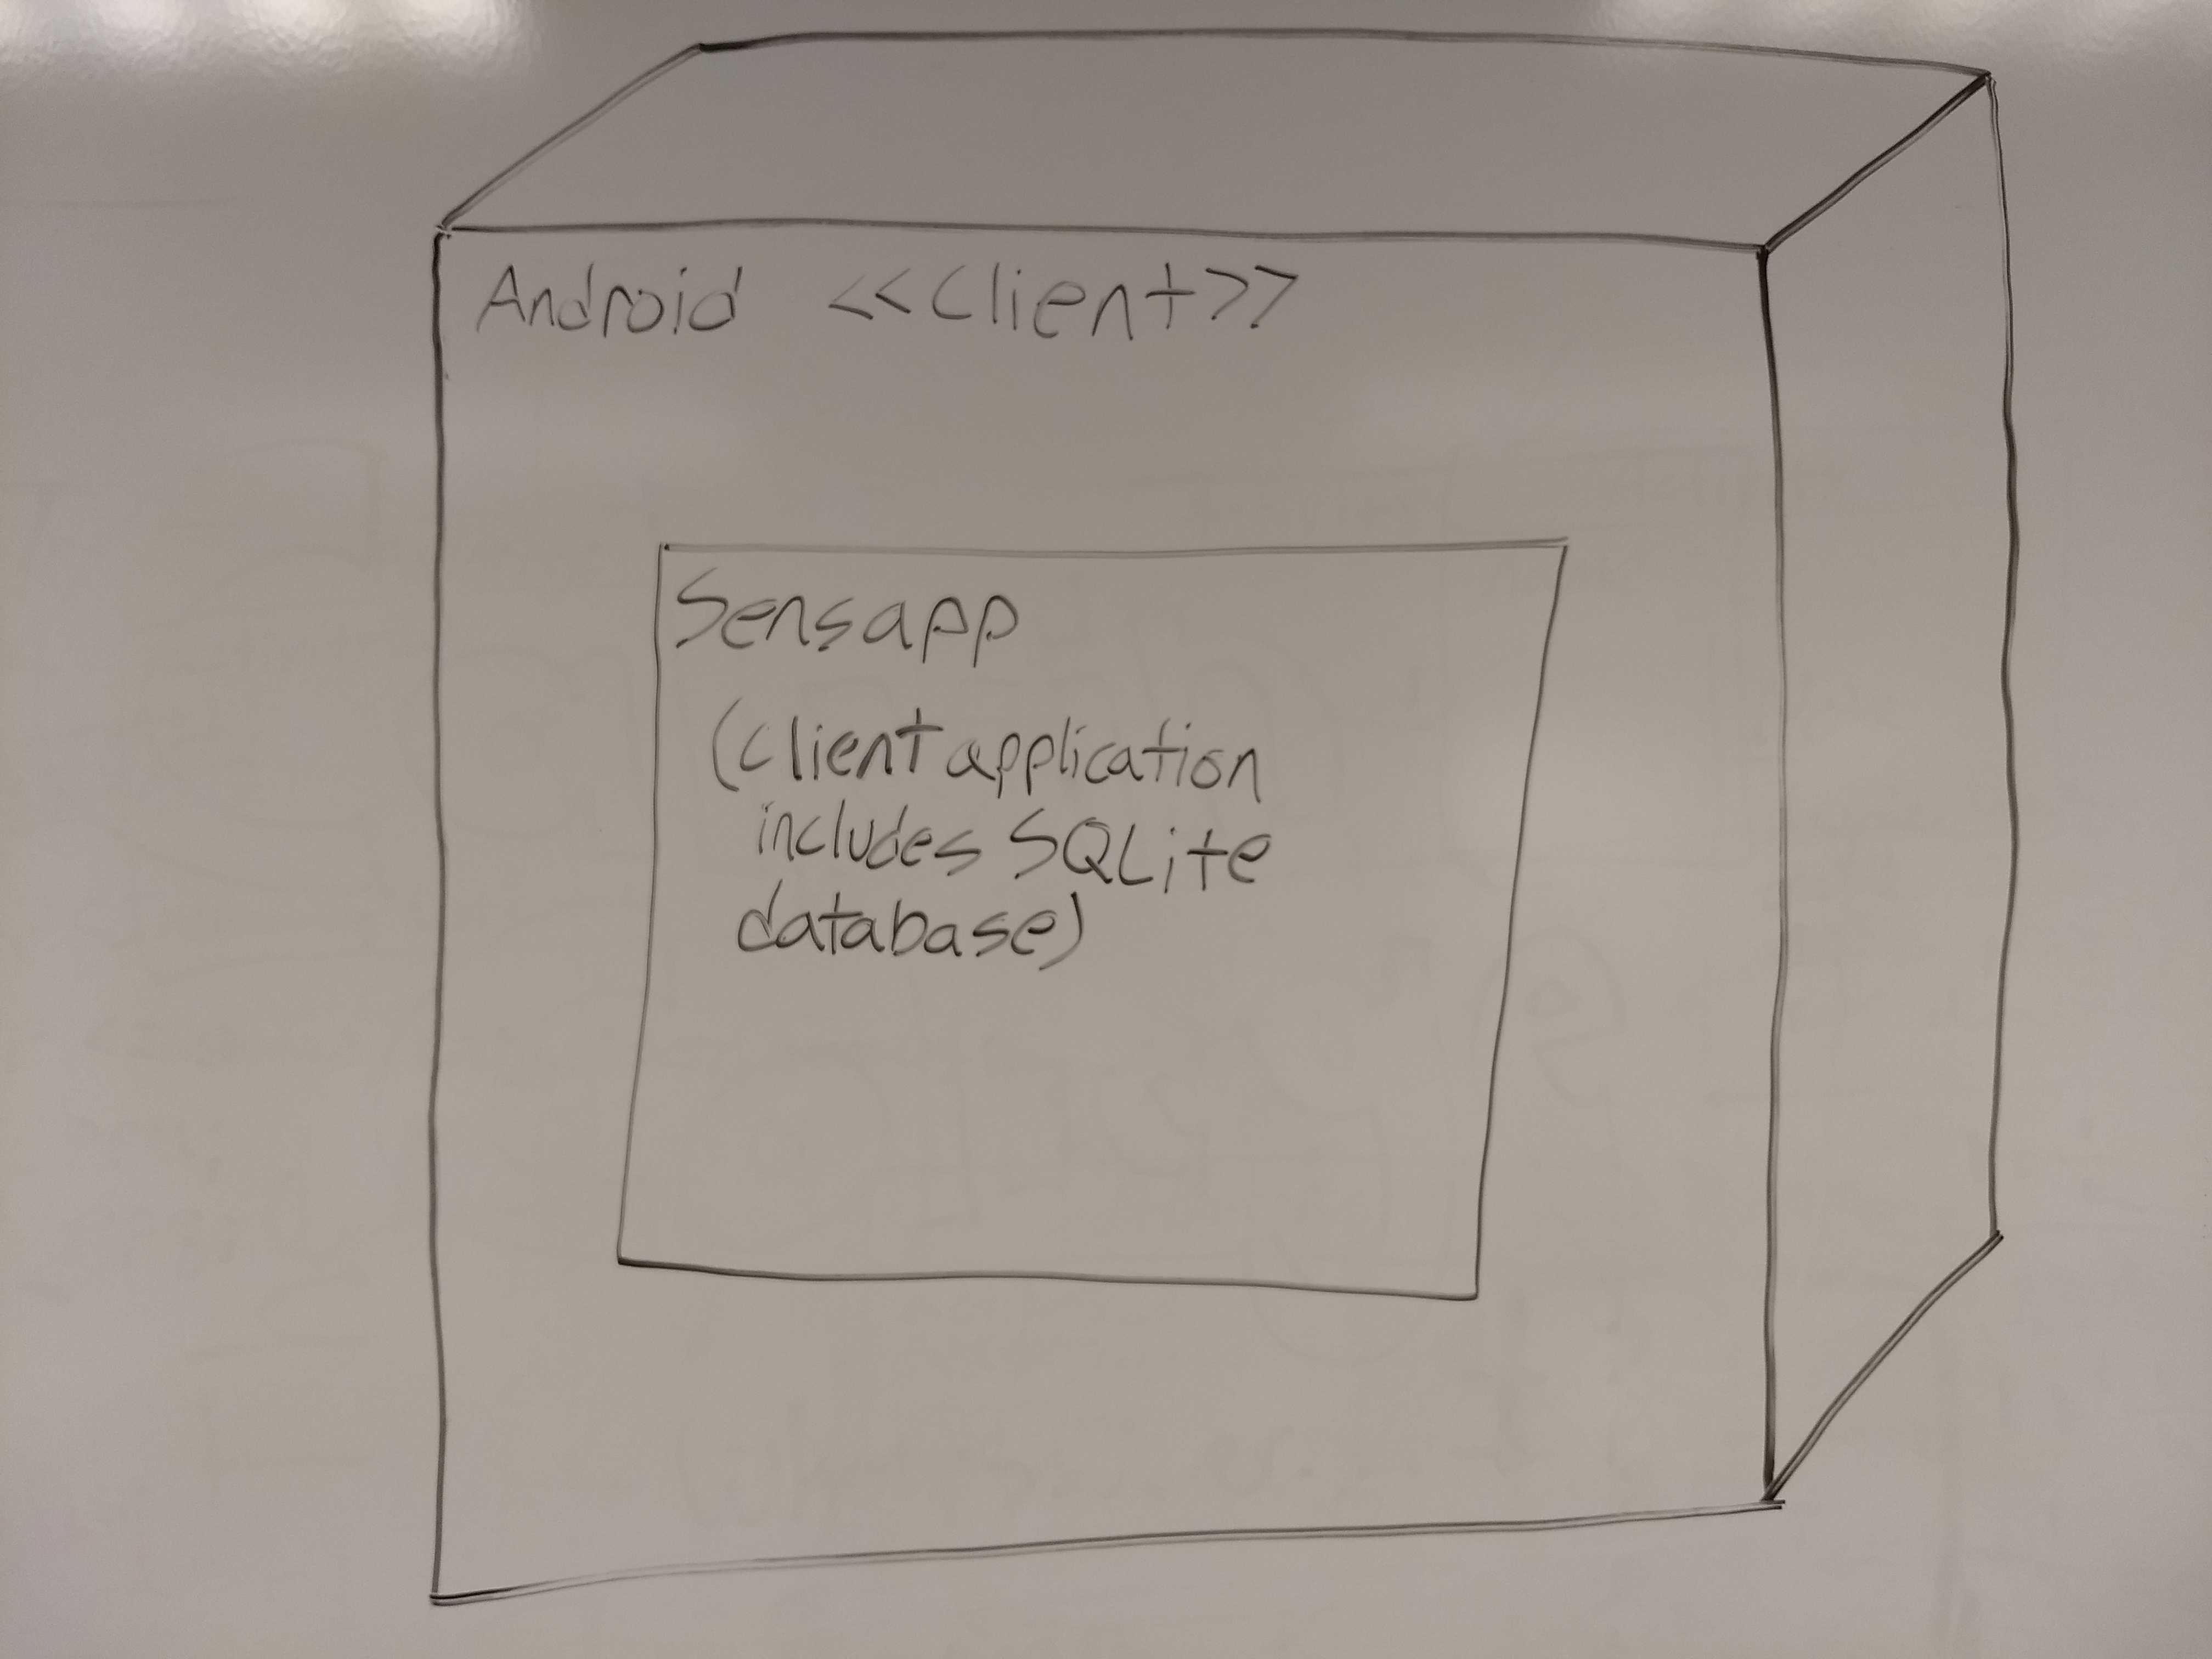 Android <<Client>>
Sensapp
(client application
includes SQLite
database)